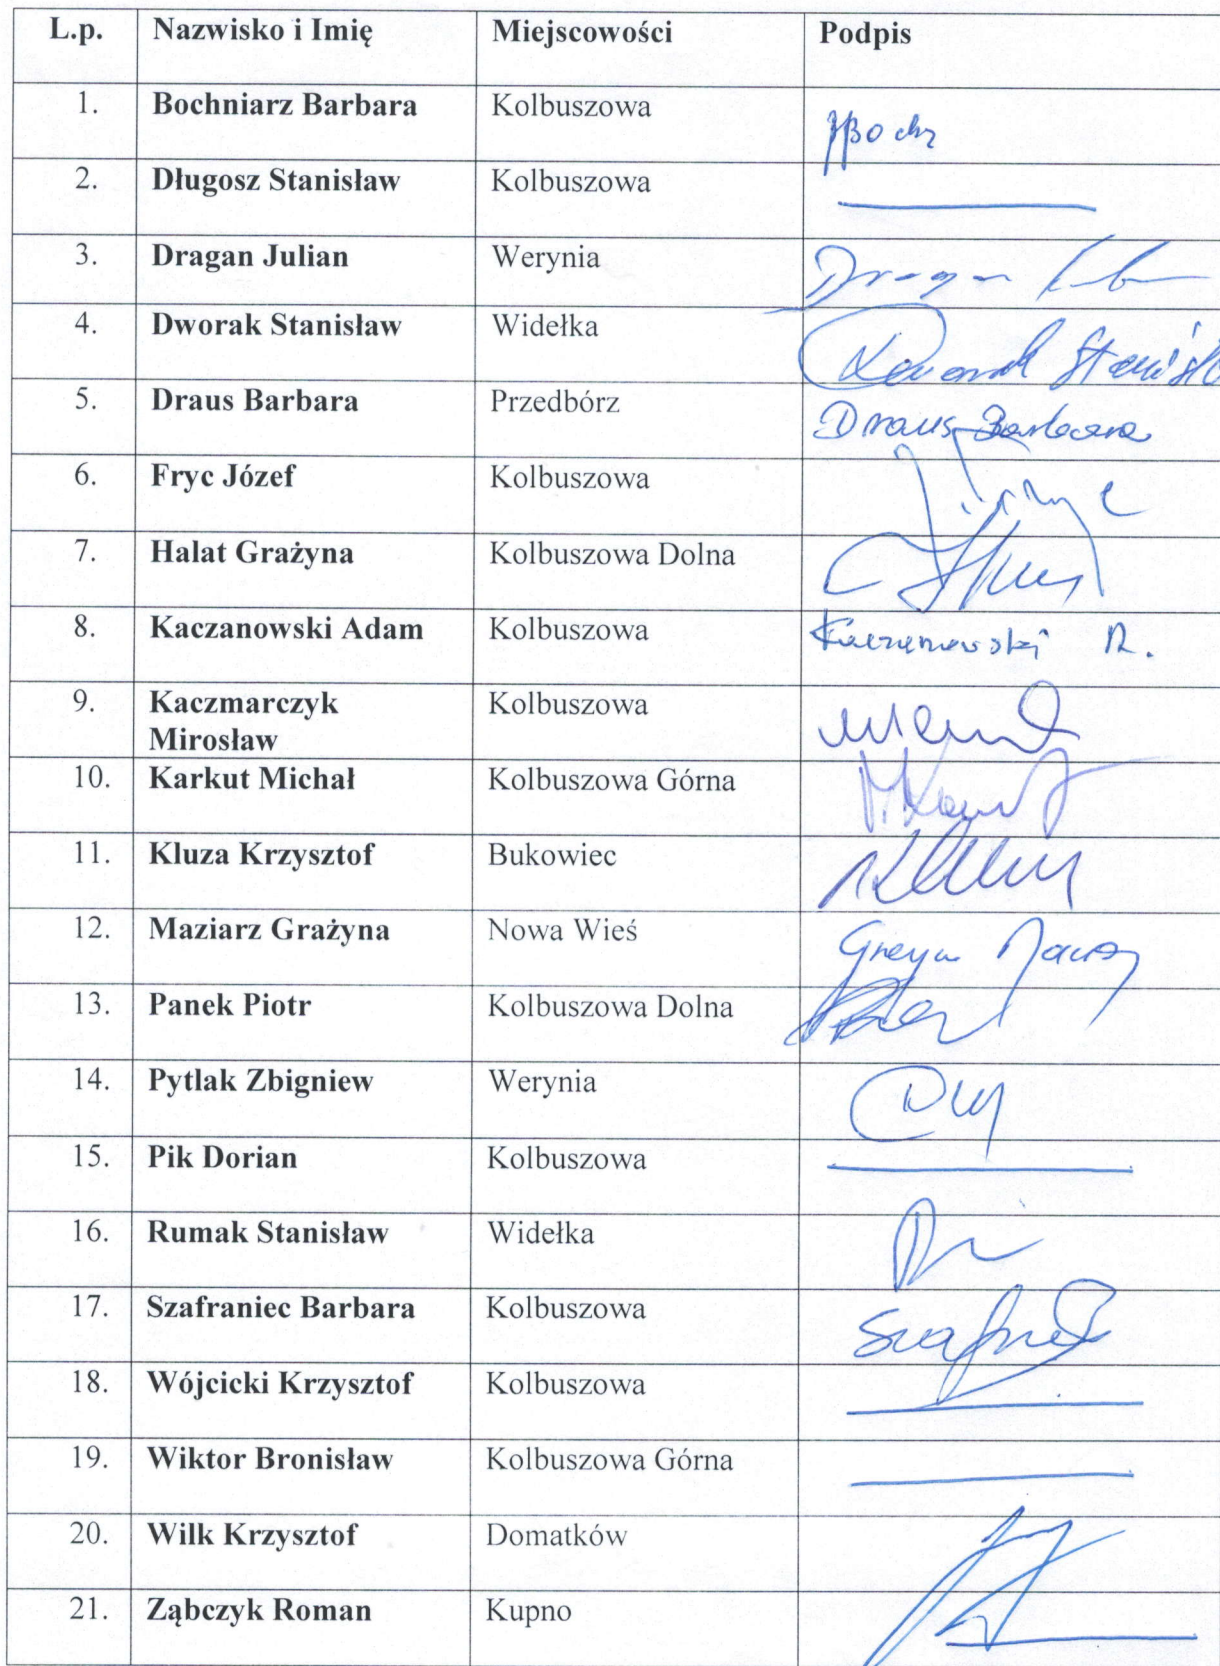 L.p. Nazwisko i Imię Miejscowości Podpis
1. Bochniarz Barbara Kolbuszowa
2. Długosz Stanisław Kolbuszowa
3. Dragan Julian Werynia Dragan
4. Dworak Stanisław Widełka
5. Draus Barbara Przedbórz Draus Barbara
6. Fryc Józef Kolbuszowa
7. Halat Grażyna Kolbuszowa Dolna
8. Kaczanowski Adam Kolbuszowa Kaczanowski A.
9. Kaczmarczyk Kolbuszowa
Mirosław
10. Karkut Michał Kolbuszowa Górna
11. Kluza Krzysztof Bukowiec
12. Maziarz Grażyna Nowa Wieś
13. Panek Piotr Kolbuszowa Dolna
14. Pytlak Zbigniew Werynia
15. Pik Dorian Kolbuszowa
16. Rumak Stanisław Widełka
17. Szafraniec Barbara Kolbuszowa
18. Wójcicki Krzysztof Kolbuszowa
19. Wiktor Bronisław Kolbuszowa Górna
20. Wilk Krzysztof Domatków
21. Ząbczyk Roman Kupno